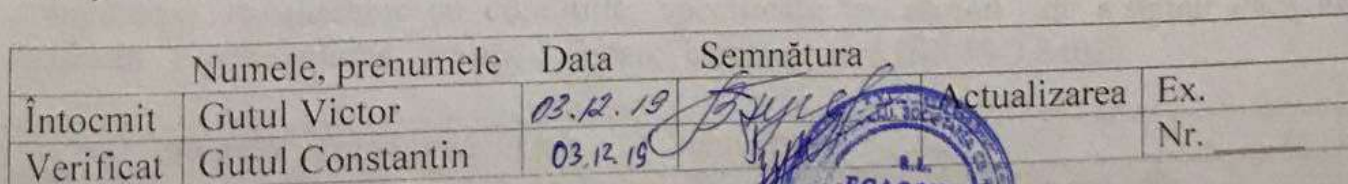 Numele, prenumele Data Semnătura
Întocmit Gutul Victor 03.12.19 Actualizarea Ex.
Verificat Gutul Constantin 03.12.19 Nr. ______
S.R.L.